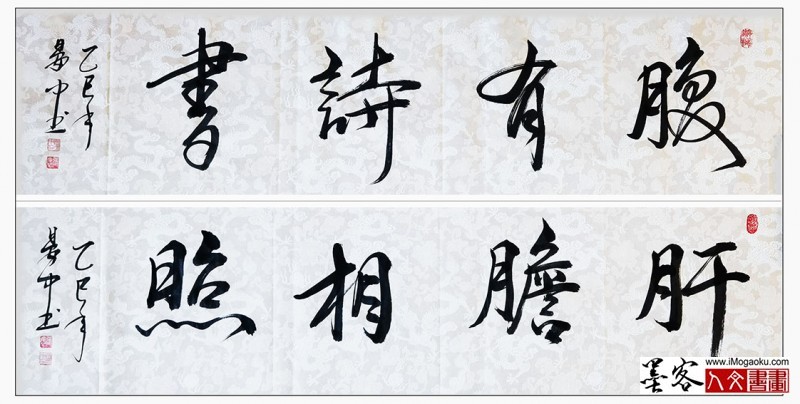 腹有詩書
乙巳年
中书
肝膽相照
乙巳年
中书
墨客
www.iMogaoku.com
人文書畫